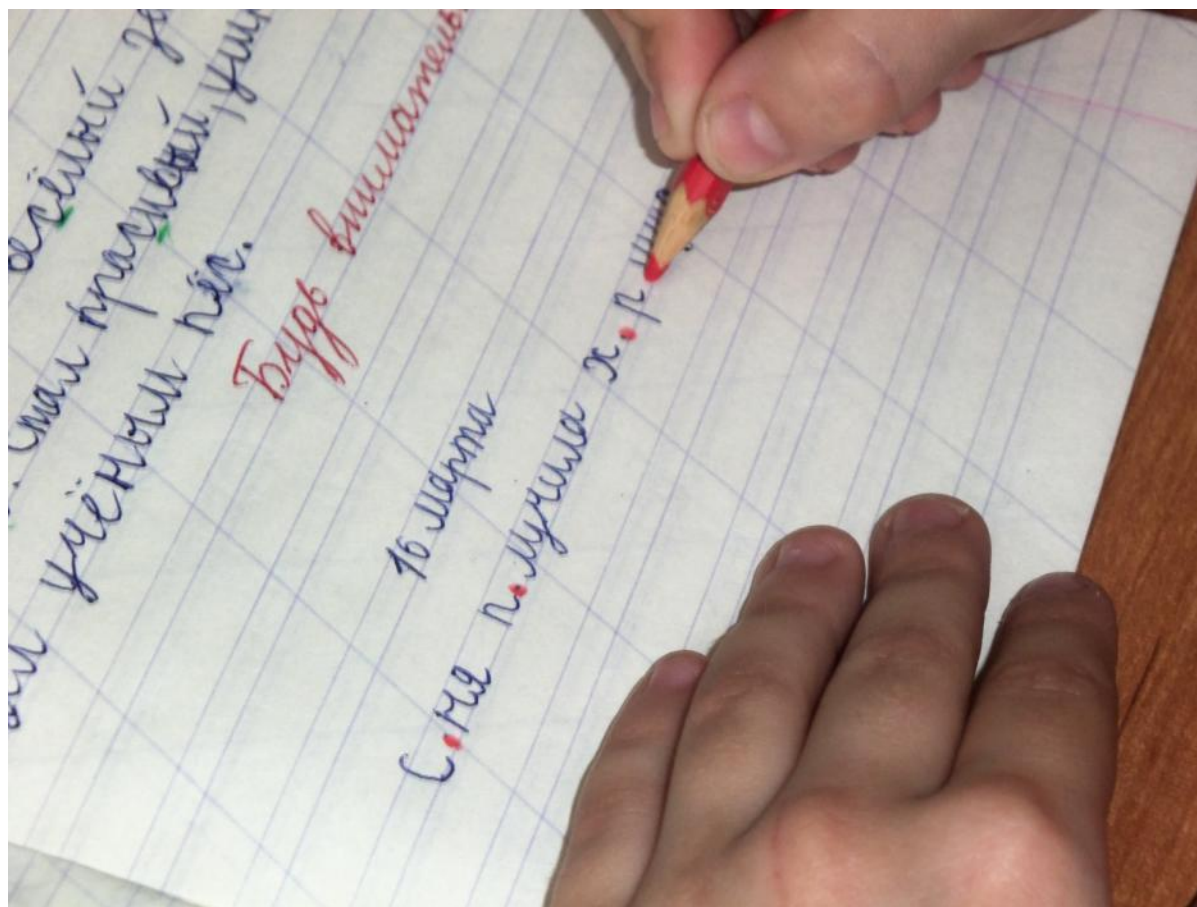 есёлый
стал красивый,
учёный пёс.
Будь внимательн
16 марта
С.ня п.лучила х.р